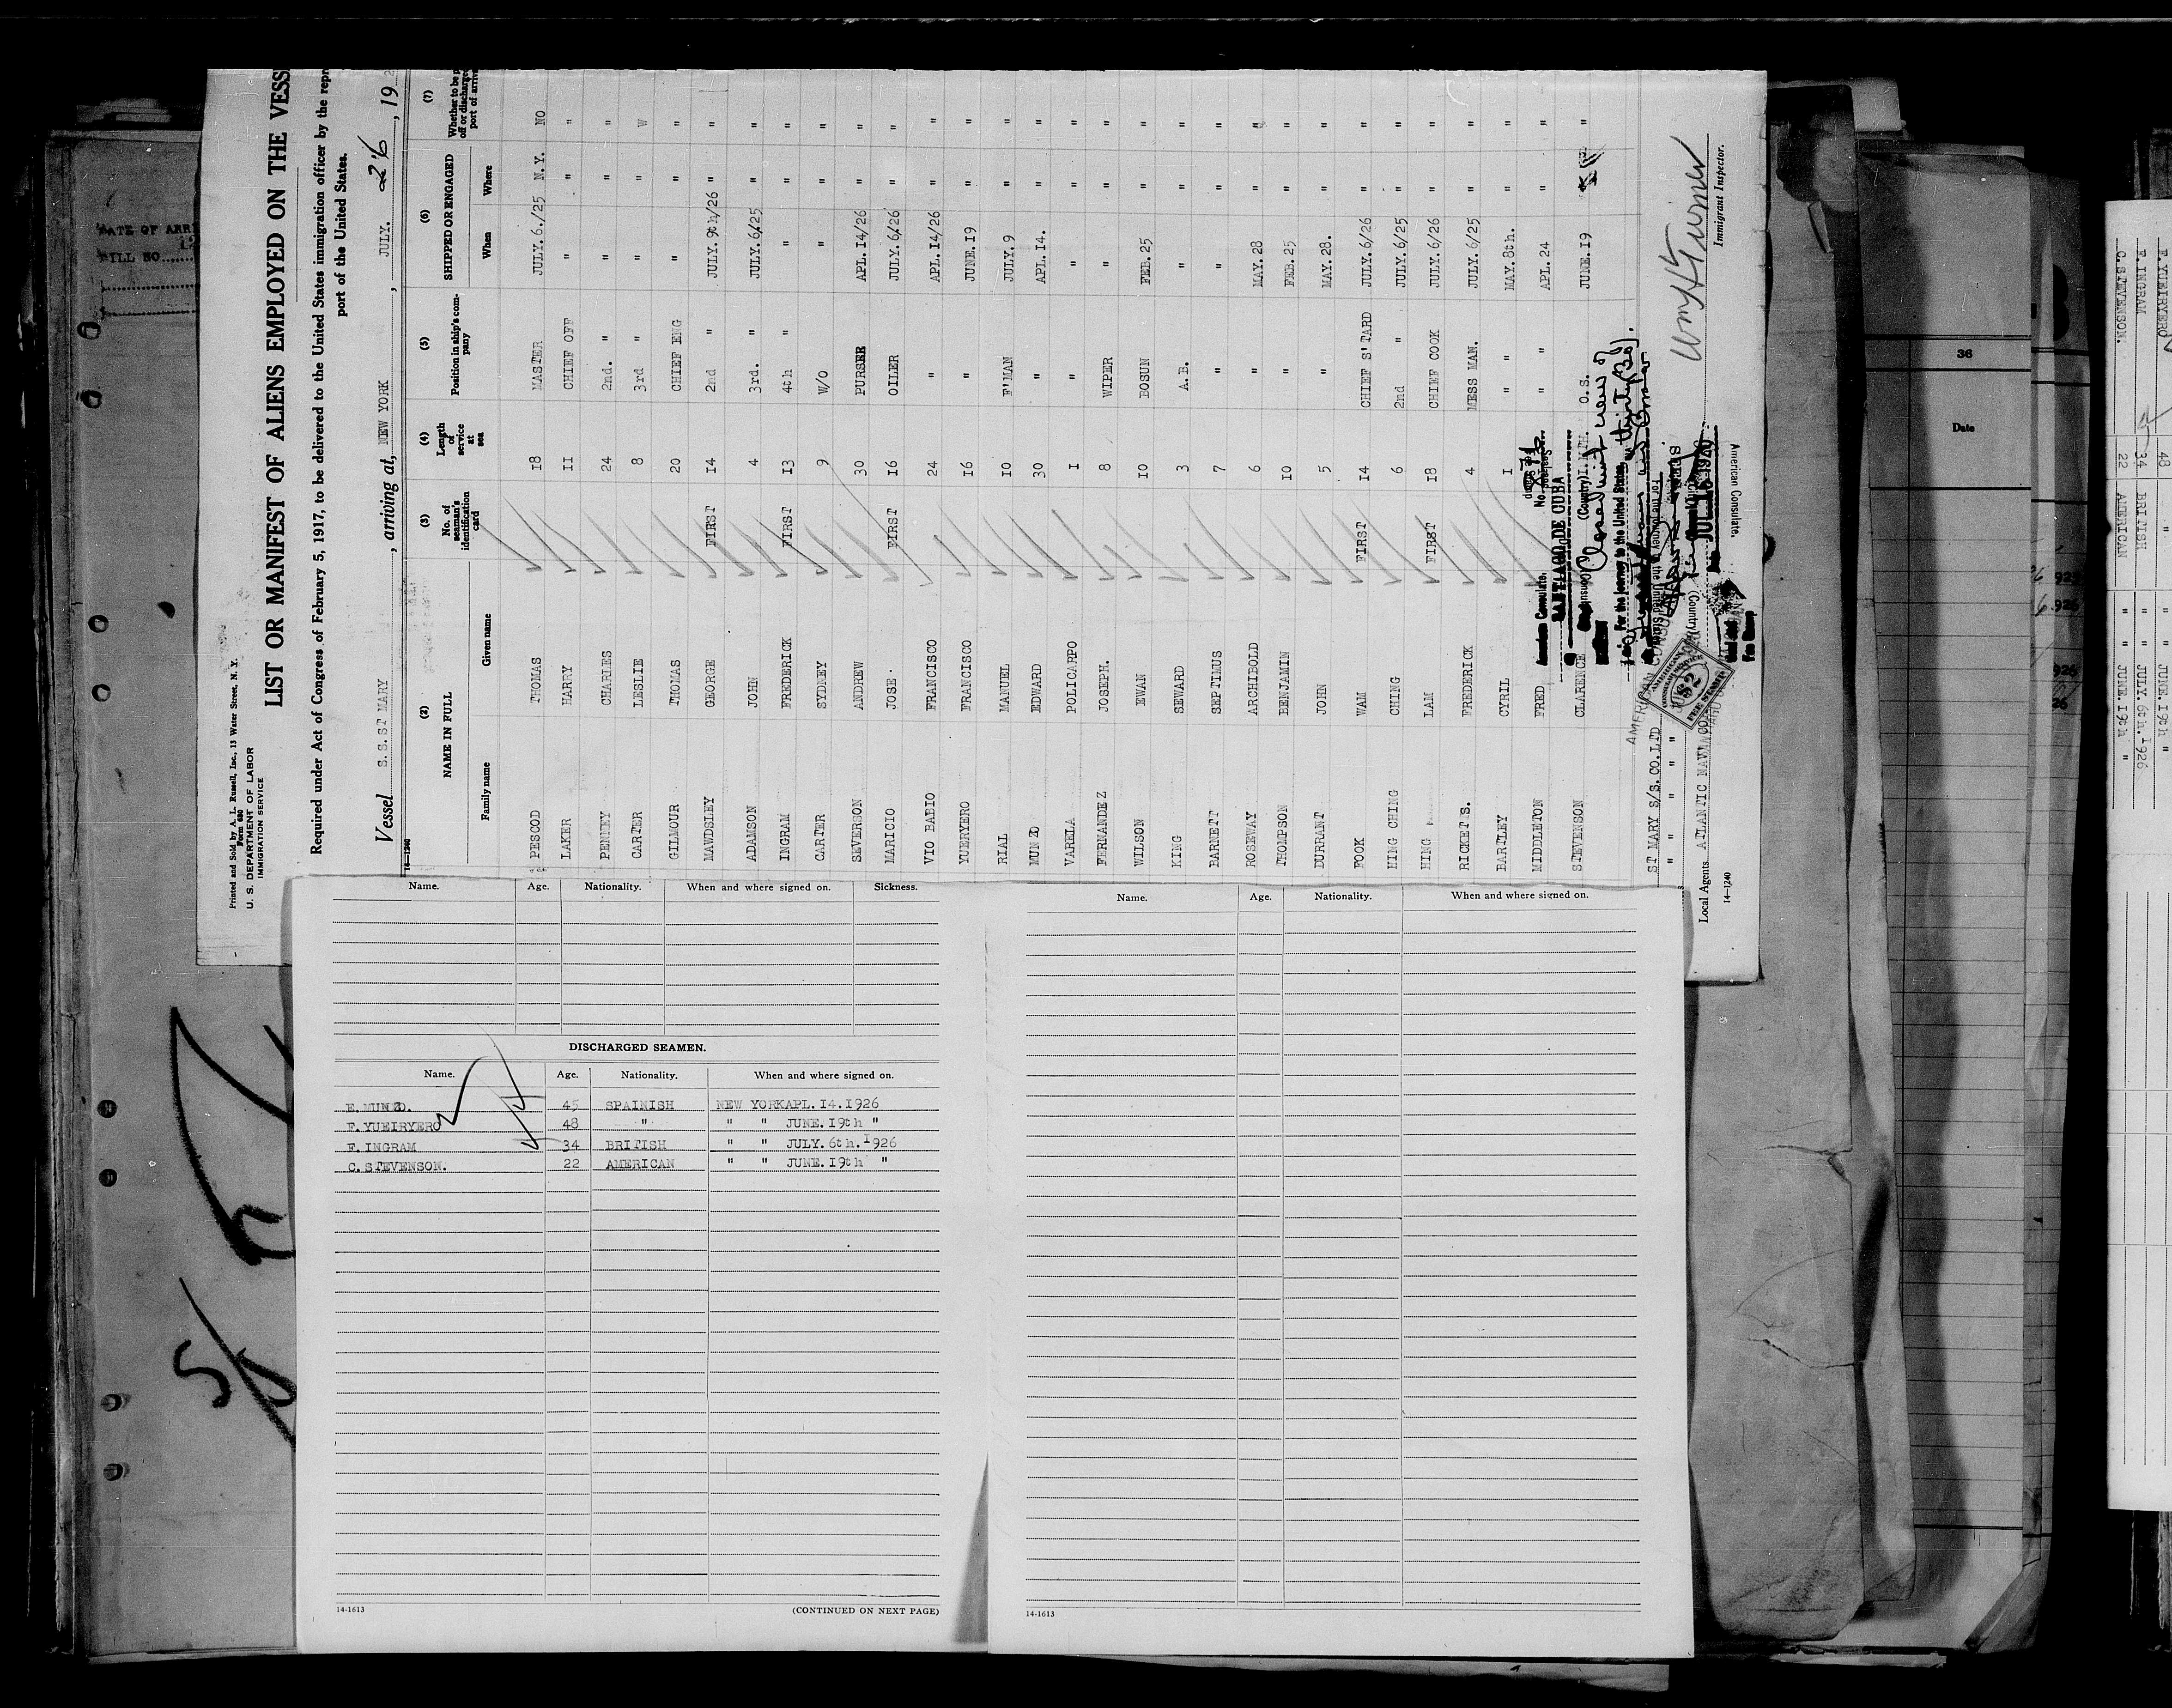 Printed and Sold by A. L. Russell, Inc., 13 Water Street, N. Y.
Form 680
U. S. DEPARTMENT OF LABOR
IMMIGRATION SERVICE
LIST OR MANIFEST OF ALIENS EMPLOYED ON THE VESS
Required under Act of Congress of February 5, 1917, to be delivered to the United States immigration officer by the repr
port of the United States.
Vessel S.S.ST MARY, arriving at, NEW YORK, JULY. 26, 19
14-1240
(2) (3) (4) (5) (6) (7)
NAME IN FULL No. of seaman's identification card Length of service at sea Position in ship's com-pany SHIPPED OR ENGAGED Whether to be p off or discharged port of arriva
Family name Given name When Where
PESCOD THOMAS 18 MASTER JULY.6./25 N.Y. NO
LAKER HARRY 11 CHIEF OFF " " "
PENNEY CHARLES 24 2nd. " " " "
CARTER LESLIE 8 3rd " " " W
GILMOUR THOMAS 20 CHIEF ENG " " "
MAWDSLEY GEORGE FIRST 14 2nd " JULY.9th/26 " "
ADAMSON JOHN 4 3rd. " JULY.6/25 " "
INGRAM FREDERICK FIRST 13 4th " " " "
CARTER SYDNEY 9 W/O " " "
SEVERSON ANDREW 30 PURSER APL.14/26 " "
MARICIO JOSE. FIRST 16 OILER JULY.6/26 " "
VIO BABIO FRANCISCO 24 " APL.14/26 " "
YUERYERO FRANCISCO 16 " JUNE.19 " "
RIAL MANUEL 10 F'MAN JULY.9 " "
MUNZO EDWARD 30 " APL.14. " "
VARELA POLICARPO 1 " " " "
FERNANDEZ JOSEPH. 8 WIPER " " "
WILSON EWAN 10 BOSUN FEB.25 " "
KING SEWARD 3 A.B. " " "
BARNETT SEPTIMUS 7 " " " "
ROSEWAY ARCHIBOLD 6 " MAY.28 " "
THOMPSON BENJAMIN 10 " FEB.25 " "
DURRANT JOHN 5 " MAY.28. " "
FOOK WAM FIRST 14 CHIEF S'TARD JULY.6/26 " "
HING CHING CHING 6 2nd " JULY.6/25 " "
HING LAM FIRST 18 CHIEF COOK JULY.6/26 " "
RICKETS. FREDERICK 4 MESS MAN. JULY.6/25 " "
BARTLEY CYRIL 1 " " MAY.8th. " "
MIDDLETON FRED " " APL.24 " "
STEVENSON CLARENCE O.S. JUNE.19 "
American Consulate,
SANTIAGO DE CUBA
For the journey to the United States
ST MARY S/S.CO.LTD
" " " "
Local Agents ATLANTIC
14-1240
American Consulate.
Immigrant Inspector.
FEE STAMP
$2
Name. Age. Nationality. When and where signed on. Sickness.
DISCHARGED SEAMEN.
Name. Age. Nationality. When and where signed on.
E.MUNZO. 45 SPAINISH NEW YORKAPL.14.1926
F.YUEIRYERO 48 " " " JUNE.19th "
F.INGRAM 34 BRITISH " " JULY.6th.1926
C.STEVENSON. 22 AMERICAN " " JUNE.19th "
14-1613 (CONTINUED ON NEXT PAGE)
Name. Age. Nationality. When and where signed on.
14-1613
36
Date
F.YUEIRYERO 48 " " " JUNE.19th "
F.INGRAM 34 BRITISH " " JULY.6th.1926
C.STEVENSON. 22 AMERICAN " " JUNE.19th "